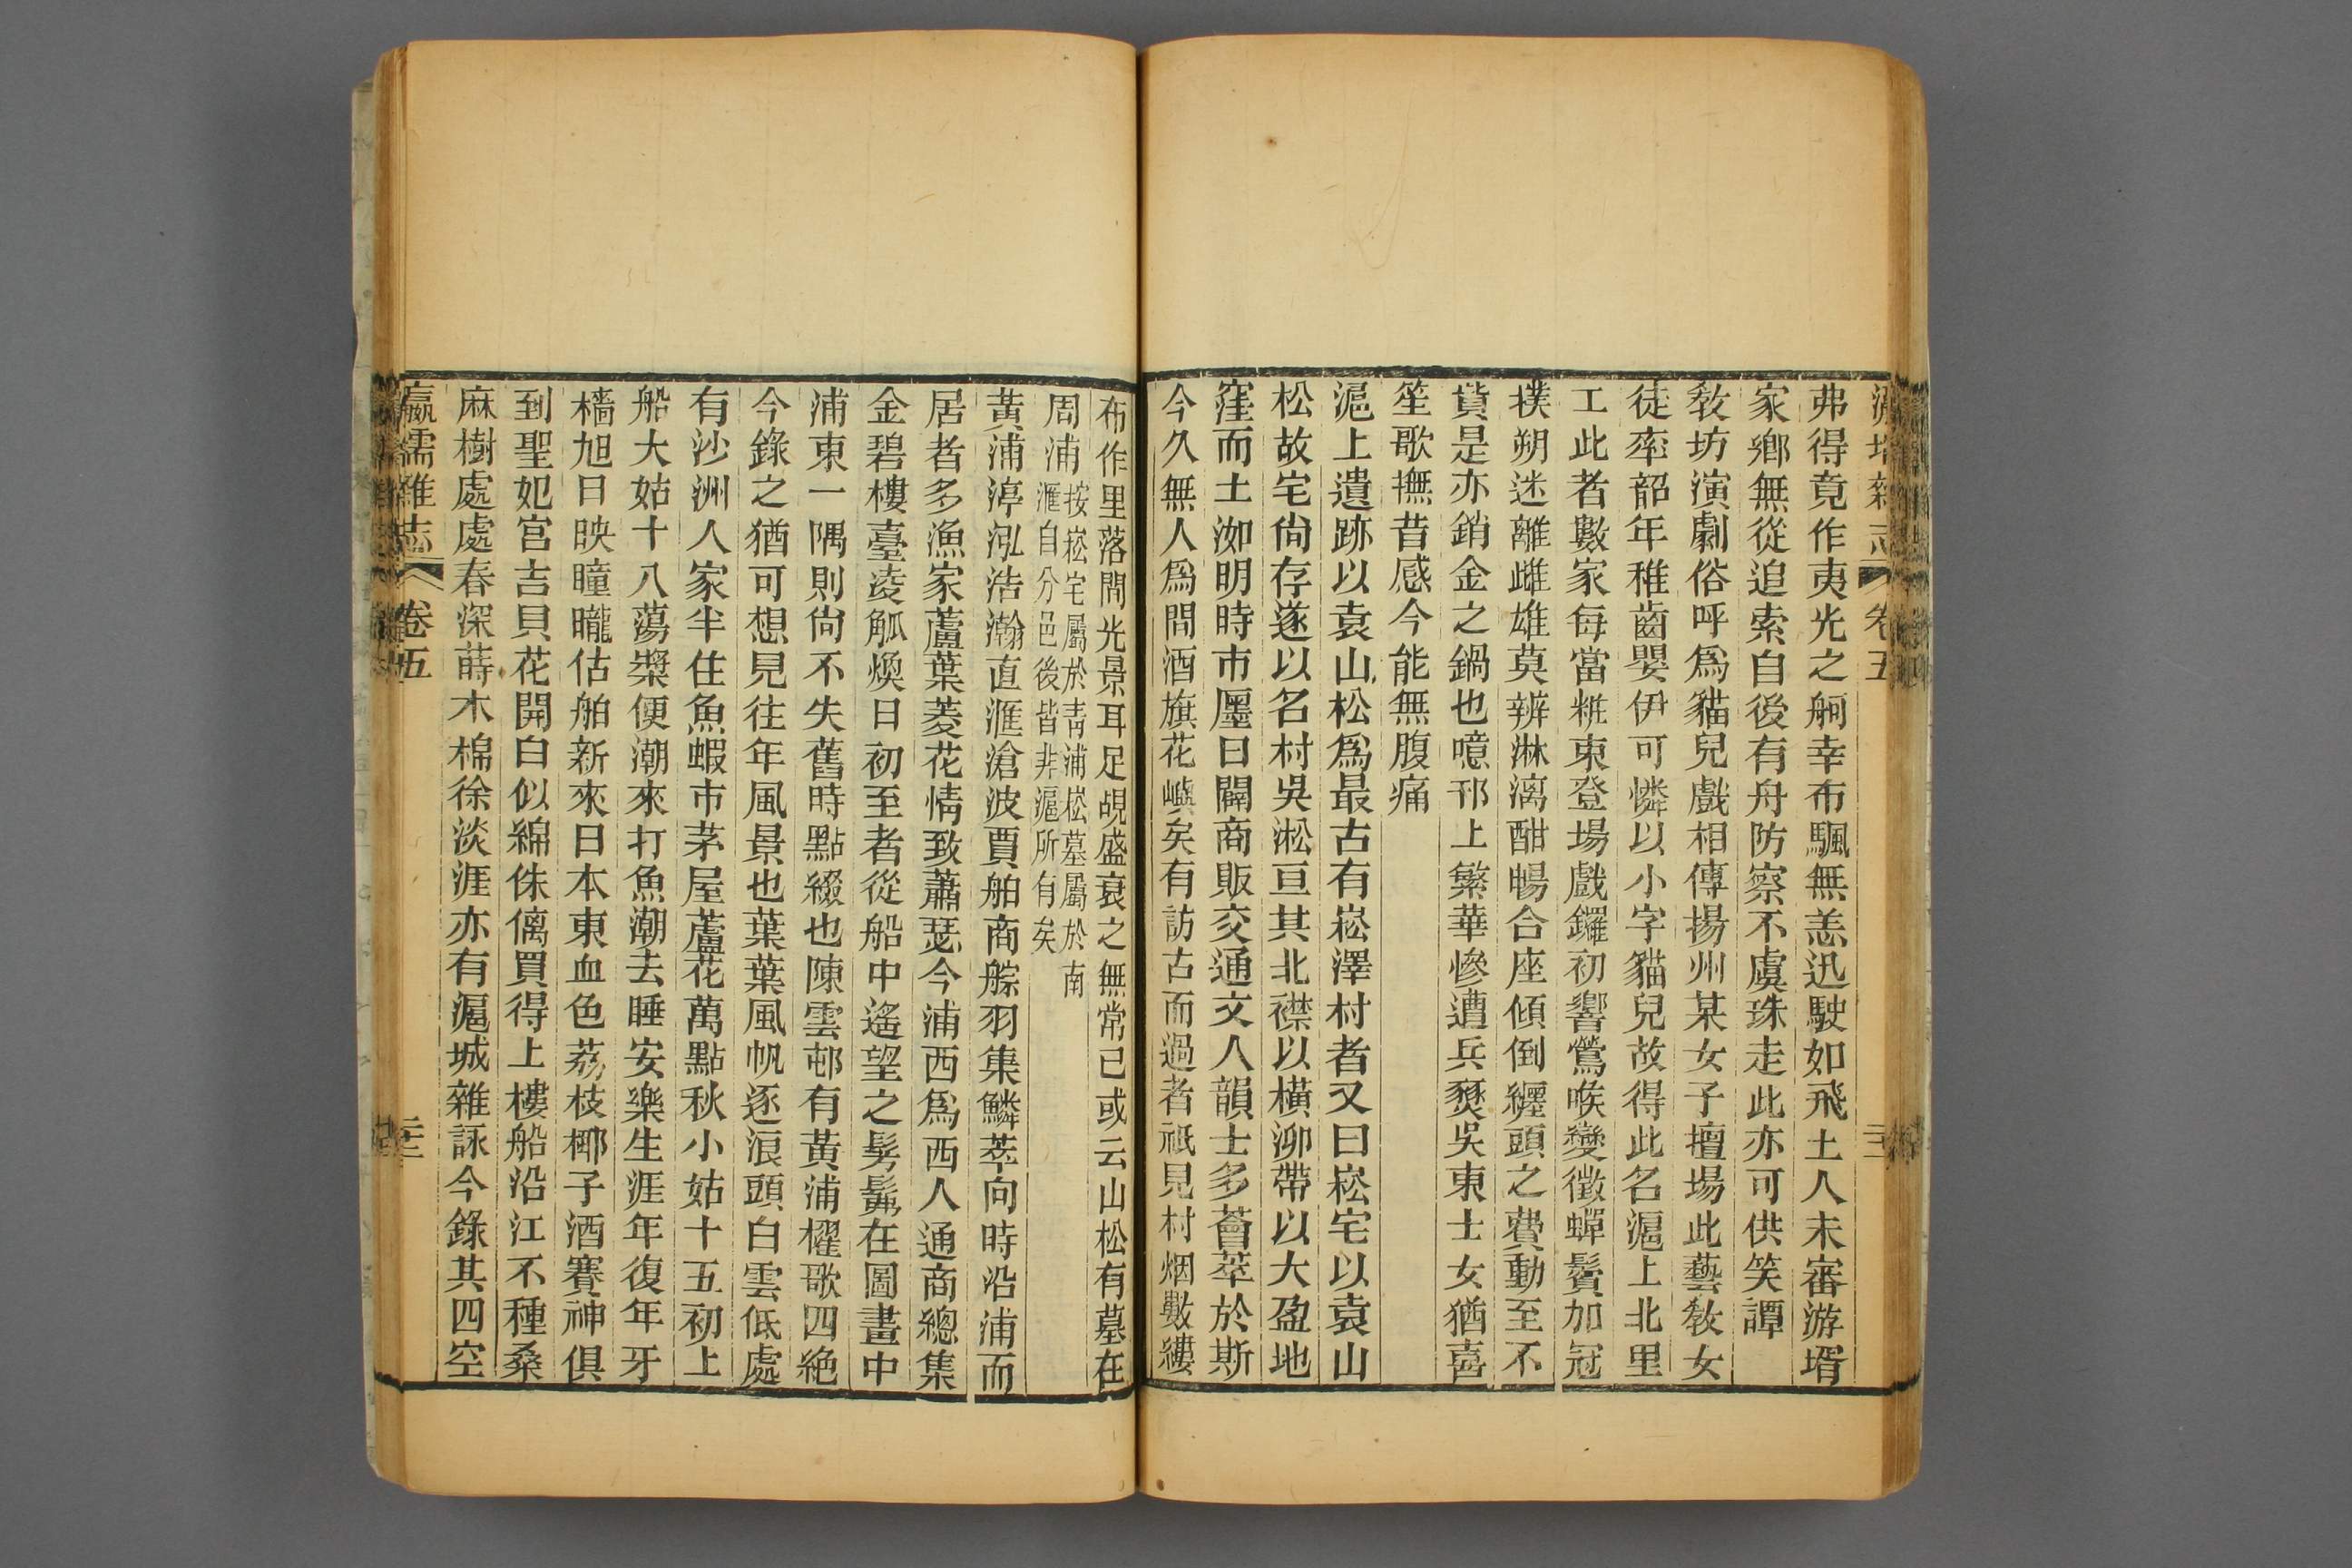 瀛壖雜志 卷五 二十一
弗得竟作夷光之舸幸布颿無恙迅駛如飛土人未審游壻
家鄉無從追索自後有舟防察不虞珠走此亦可供笑譚
敎坊演劇俗呼爲貓兒戲相傳揚州某女子擅場此藝敎女
徒率韶年稚齒嬰伊可憐以小字貓兒故得此名滬上北里
工此者數家每當粧束登場戲鑼初響鶯喉變徵蟬鬢加冠
撲朔迷離雌雄莫辨淋漓酣暢合座傾倒纒頭之費動至不
貲是亦銷金之鍋也噫邗上繁華慘遭兵燹吳東士女猶喜
笙歌撫昔感今能無腹痛
滬上遺跡以袁山松爲最古有崧澤村者又曰崧宅以袁山
松故宅尙存遂以名村吳淞亘其北襟以橫泖帶以大盈地
窪而土洳明時市廛日闢商販交通文人韻士多薈萃於斯
今久無人爲問酒旗花嶼矣有訪古而過者祇見村烟數縷
布作里落間光景耳足覘盛衰之無常已或云山松有墓在
周浦按崧宅屬於靑浦崧墓屬於南滙自分邑後皆非滬所有矣
黃浦渟泓浩瀚直滙滄波賈舶商艅羽集鱗萃向時沿浦而
居者多漁家蘆葉菱花情致蕭瑟今浦西爲西人通商總集
金碧樓臺淩觚煥日初至者從船中遙望之髣髴在圖畫中
浦東一隅則尙不失舊時點綴也陳雲邨有黃浦櫂歌四絶
今錄之猶可想見往年風景也葉葉風帆逐浪頭白雲低處
有沙洲人家半住魚蝦市茅屋蘆花萬點秋小姑十五初上
船大姑十八蕩槳便潮來打魚潮去睡安樂生涯年復年牙
檣旭日映曈曨估舶新來日本東血色荔枝椰子酒賽神俱
到聖妃宫吉貝花開白似綿侏儷買得上樓船沿江不種桑
麻樹處處春深蒔木棉徐淡涯亦有滬城雜詠今錄其四空
瀛壖雜志 卷五 二十二